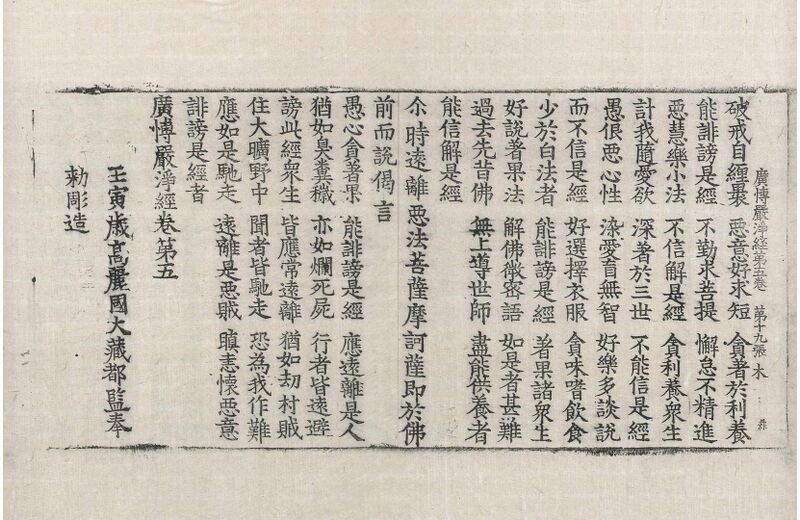 破戒自經㝡　惡意好求短　貪著於利養
廣博嚴淨經第五卷　第十九張　木
能誹謗是經　不勤求菩提　懈怠不精進
惡慧樂小法　不信解是經　貪利養衆生
計我隨愛欲　深著於三世　不能信是經
愚佷惡心性　染愛盲無智　好樂多談說
而不信是經　好選擇衣服　貪味嗜飲食
少於白法者　能誹謗是經　著果諸衆生
好說著果法　解佛微密語　如是者甚難
過去先昔佛　無上導世師　盡能供養者
能信解是經
尒時遠離惡法菩薩摩訶薩即於佛
前而說偈言
愚心貪著果　能誹謗是經　應遠離是人
猶如臭糞穢　亦如爛死屍　行者皆遠避
謗此經衆生　皆應常遠離　猶如刧村賊
住大曠野中　聞者皆馳走　恐為我作難
應如是馳走　遠離是惡賊　瞋恚懷惡意
誹謗是經者
廣博嚴淨經卷第五
壬寅歲高麗國大藏都監奉
勅彫造